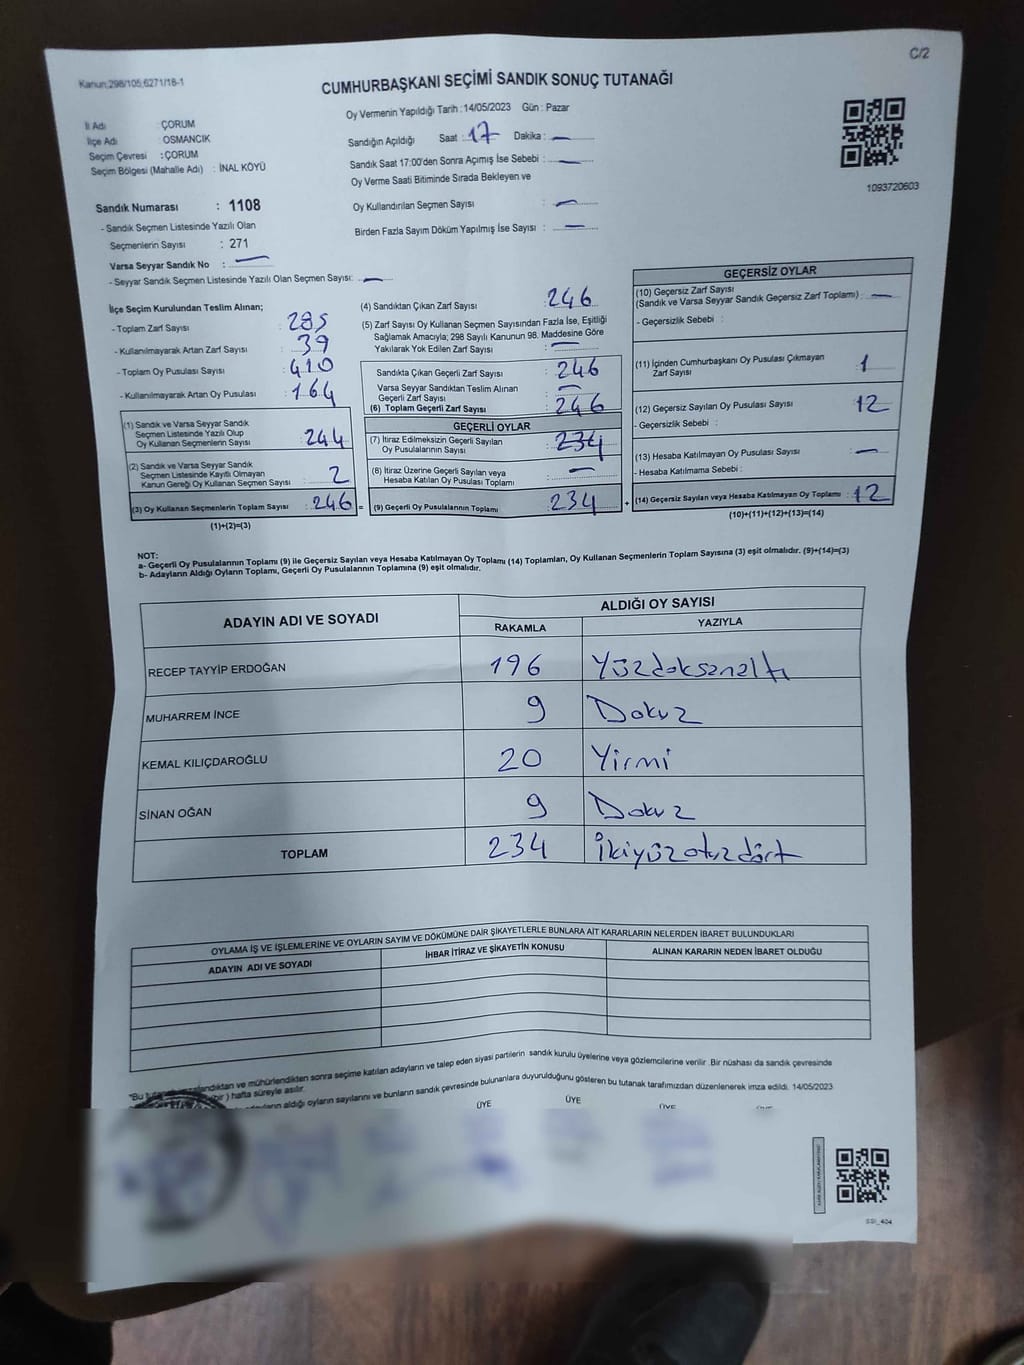 C/2
Kanun;298/105;6271/18-1
CUMHURBAŞKANI SEÇİMİ SANDIK SONUÇ TUTANAĞI
Oy Vermenin Yapıldığı Tarih : 14/05/2023 Gün : Pazar
İl Adı : ÇORUM
İlçe Adı : OSMANCIK
Seçim Çevresi : ÇORUM
Seçim Bölgesi (Mahalle Adı) : İNAL KÖYÜ
Sandık Numarası : 1108
- Sandık Seçmen Listesinde Yazılı Olan
Seçmenlerin Sayısı : 271
Varsa Seyyar Sandık No : —
- Seyyar Sandık Seçmen Listesinde Yazılı Olan Seçmen Sayısı: —
Sandığın Açıldığı Saat : 17 Dakika : —
Sandık Saat 17:00'den Sonra Açımış İse Sebebi : —
Oy Verme Saati Bitiminde Sırada Bekleyen ve
Oy Kullandırılan Seçmen Sayısı : —
Birden Fazla Sayım Döküm Yapılmış İse Sayısı : —
1093720603
İlçe Seçim Kurulundan Teslim Alınan;
- Toplam Zarf Sayısı : 285
- Kullanılmayarak Artan Zarf Sayısı : 39
- Toplam Oy Pusulası Sayısı : 410
- Kullanılmayarak Artan Oy Pusulası : 164
(1) Sandık ve Varsa Seyyar Sandık
Seçmen Listesinde Yazılı Olup
Oy Kullanan Seçmenlerin Sayısı : 244
(2) Sandık ve Varsa Seyyar Sandık
Seçmen Listesinde Kayıtlı Olmayan
Kanun Gereği Oy Kullanan Seçmen Sayısı : 2
(3) Oy Kullanan Seçmenlerin Toplam Sayısı : 246 =
(1)+(2)=(3)
(4) Sandıktan Çıkan Zarf Sayısı : 246
(5) Zarf Sayısı Oy Kullanan Seçmen Sayısından Fazla İse, Eşitliği
Sağlamak Amacıyla; 298 Sayılı Kanunun 98. Maddesine Göre
Yakılarak Yok Edilen Zarf Sayısı : —
Sandıkta Çıkan Geçerli Zarf Sayısı : 246
Varsa Seyyar Sandıktan Teslim Alınan
Geçerli Zarf Sayısı : —
(6) Toplam Geçerli Zarf Sayısı : 246
GEÇERLİ OYLAR
(7) İtiraz Edilmeksizin Geçerli Sayılan
Oy Pusulasının Sayısı : 234
(8) İtiraz Üzerine Geçerli Sayılan veya
Hesaba Katılan Oy Pusulası Toplamı : —
(9) Geçerli Oy Pusulalarının Toplamı : 234 +
GEÇERSİZ OYLAR
(10) Geçersiz Zarf Sayısı
(Sandık ve Varsa Seyyar Sandık Geçersiz Zarf Toplamı) : —
- Geçersizlik Sebebi :
(11) İçinden Cumhurbaşkanı Oy Pusulası Çıkmayan
Zarf Sayısı : 1
(12) Geçersiz Sayılan Oy Pusulası Sayısı : 12
- Geçersizlik Sebebi :
(13) Hesaba Katılmayan Oy Pusulası Sayısı : —
- Hesaba Katılmama Sebebi :
(14) Geçersiz Sayılan veya Hesaba Katılmayan Oy Toplamı : 12
(10)+(11)+(12)+(13)=(14)
NOT:
a- Geçerli Oy Pusulalarının Toplamı (9) ile Geçersiz Sayılan veya Hesaba Katılmayan Oy Toplamı (14) Toplamları, Oy Kullanan Seçmenlerin Toplam Sayısına (3) eşit olmalıdır. (9)+(14)=(3)
b- Adayların Aldığı Oyların Toplamı, Geçerli Oy Pusulalarının Toplamına (9) eşit olmalıdır.
ADAYIN ADI VE SOYADI ALDIĞI OY SAYISI
RAKAMLA YAZIYLA
RECEP TAYYİP ERDOĞAN 196 Yüzdoksanaltı
MUHARREM İNCE 9 Dokuz
KEMAL KILIÇDAROĞLU 20 Yirmi
SİNAN OĞAN 9 Dokuz
TOPLAM 234 İkiyüzotuzdört
OYLAMA İŞ VE İŞLEMLERİNE VE OYLARIN SAYIM VE DÖKÜMÜNE DAİR ŞİKAYETLERLE BUNLARA AİT KARARLARIN NELERDEN İBARET BULUNDUKLARI
ADAYIN ADI VE SOYADI İHBAR İTİRAZ VE ŞİKAYETİN KONUSU ALINAN KARARIN NEDEN İBARET OLDUĞU
*Bu mühürlendikten sonra seçime katılan adayların ve talep eden siyasi partilerin sandık kurulu üyelerine veya gözlemcilerine verilir .Bir nüshası da sandık çevresinde
hafta süreyle asılır.
aldığı oyların sayılarını ve bunların sandık çevresinde bulunanlara duyurulduğunu gösteren bu tutanak tarafımızdan düzenlenerek imza edildi. 14/05/2023
ÜYE ÜYE ÜYE
SSI_404